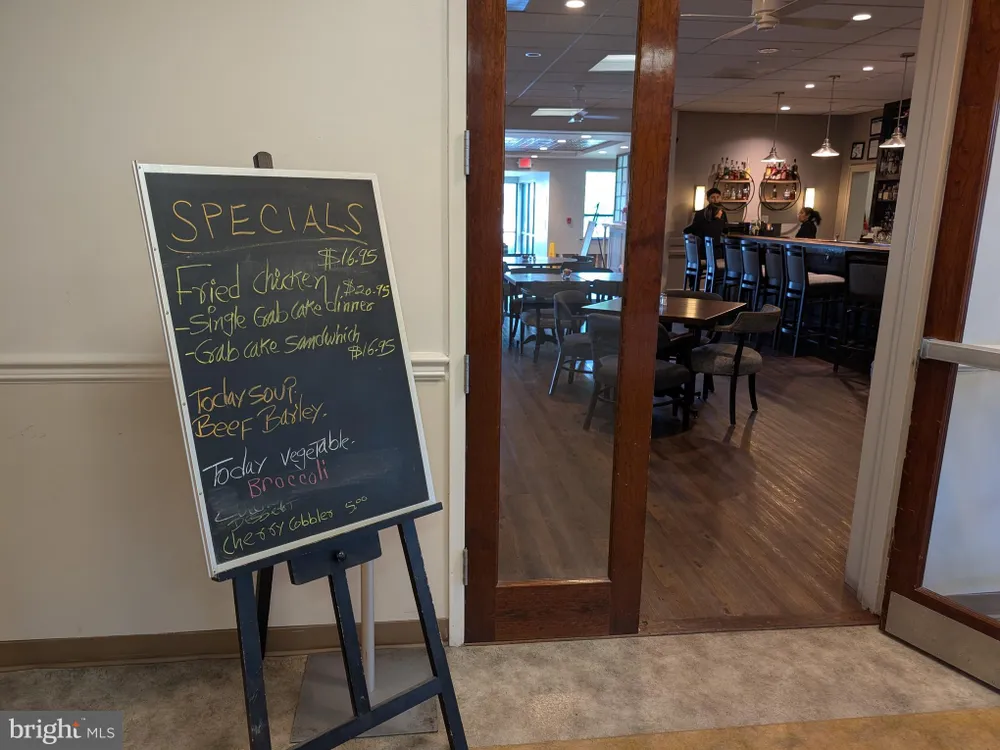 SPECIALS
$16.95
Fried chicken
$20.95
-Single Crab Cake dinner
-Crab cake sandwhich
$16.95
Today soup.
Beef Barley.
Today vegetable.
Broccoli
Cherry Cobbler 5.00
bright MLS